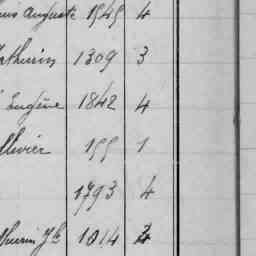 Auguste 1545 4
Mathurin 1309 3
Eugène 1842 4
Olivier 155 1
1793 4
thurin Jh 1014